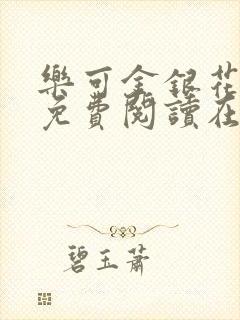 樂可金銀花
免費閱讀在
碧玉蕭